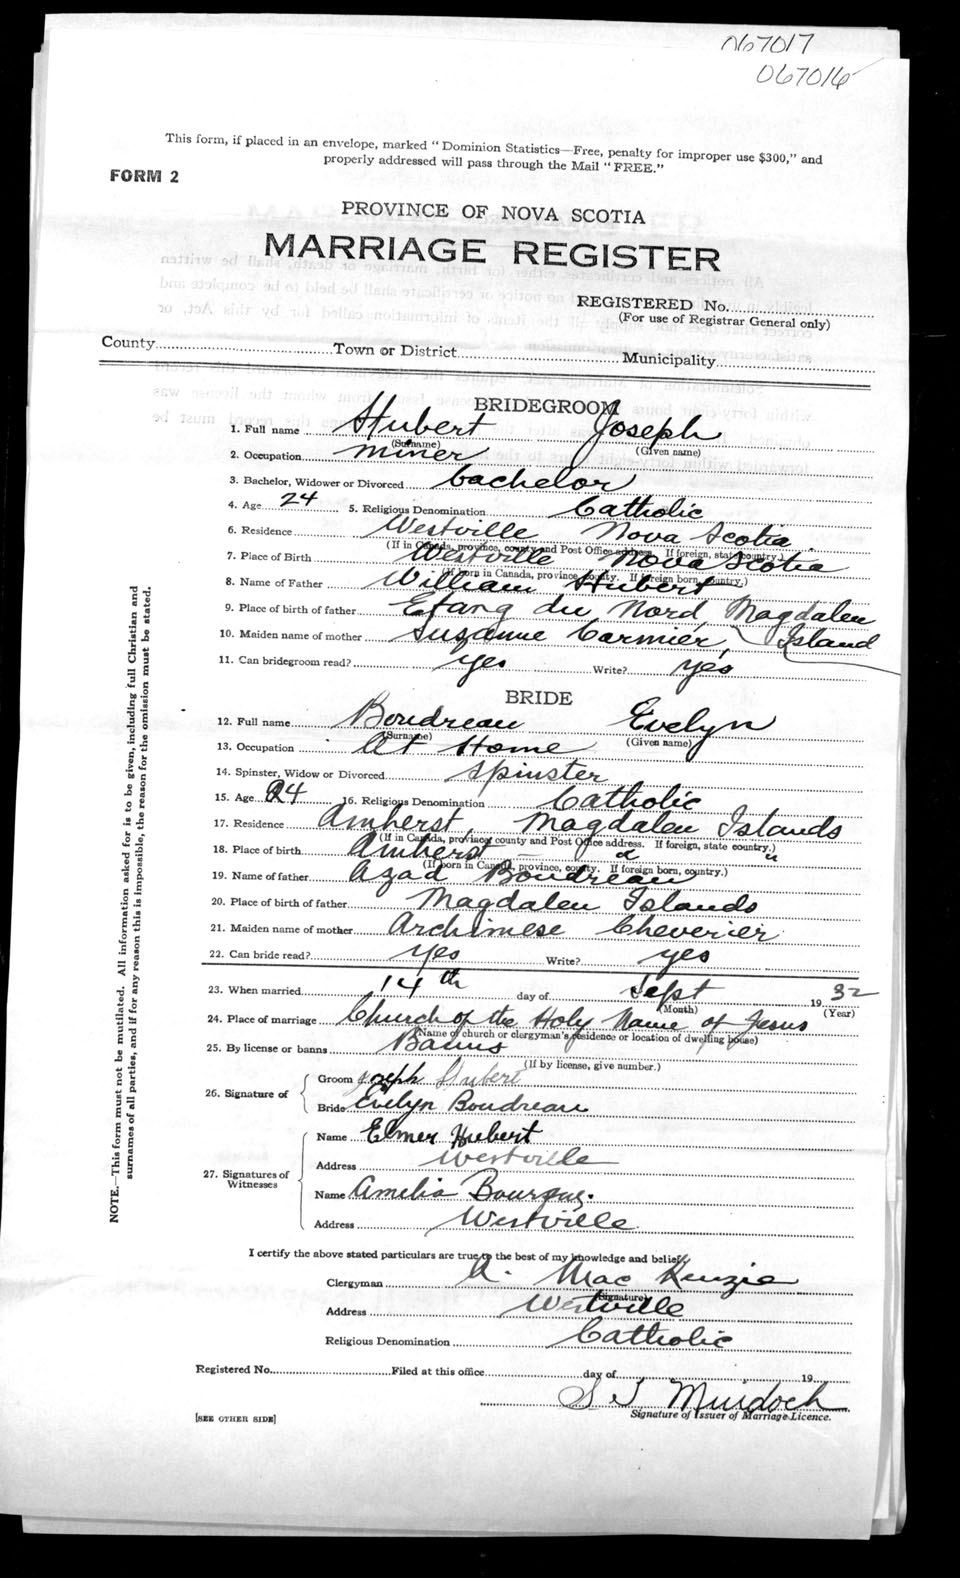 067017
067016
This form, if placed in an envelope, marked "Dominion Statistics—Free, penalty for improper use $300," and
properly addressed will pass through the Mail "FREE."
FORM 2
PROVINCE OF NOVA SCOTIA
MARRIAGE REGISTER
REGISTERED No.
(For use of Registrar General only)
County Town or District Municipality
BRIDEGROOM
1. Full name Hubert Joseph
(Surname) (Given name)
2. Occupation miner
3. Bachelor, Widower or Divorced bachelor
4. Age 24 5. Religious Denomination Catholic
6. Residence Westville Nova Scotia
(If in Canada, province, county and Post Office address. If foreign, state country.)
7. Place of Birth Westville Nova Scotia
(If born in Canada, province, county. If foreign born, country.)
8. Name of Father William Hubert
9. Place of birth of father Etang du Nord, Magdalen
Island
10. Maiden name of mother Suzanne Cormier,
11. Can bridegroom read? yes Write? yes
BRIDE
12. Full name Boudreau Evelyn
(Surname) (Given name)
13. Occupation At Home
14. Spinster, Widow or Divorced Spinster
15. Age 24 16. Religious Denomination Catholic
17. Residence Amherst, Magdalen Islands
(If in Canada, province, county and Post Office address. If foreign, state country.)
18. Place of birth Amherst — " "
(If born in Canada, province, county. If foreign born, country.)
19. Name of father Azad Boudreau
20. Place of birth of father Magdalen Islands
21. Maiden name of mother Archimese Cheverier
22. Can bride read? yes Write? yes
23. When married 14th day of Sept 1932
(Month) (Year)
24. Place of marriage Church of the Holy Name of Jesus
(Name of church or clergyman's residence or location of dwelling house)
25. By license or banns Banns
(If by license, give number.)
26. Signature of
Groom Joseph Hubert
Bride Evelyn Boudreau
27. Signatures of Witnesses
Name Elmer Hubert
Address Westville
Name Amelia Bourque.
Address Westville
I certify the above stated particulars are true to the best of my knowledge and belief.
Clergyman A. MacKenzie
(Signature)
Address Westville
Religious Denomination Catholic
Registered No. Filed at this office day of 19
S J Murdoch
Signature of Issuer of Marriage Licence.
[SEE OTHER SIDE]
NOTE.—This form must not be mutilated. All information asked for is to be given, including full Christian and
surnames of all parties, and if for any reason this is impossible, the reason for the omission must be stated.